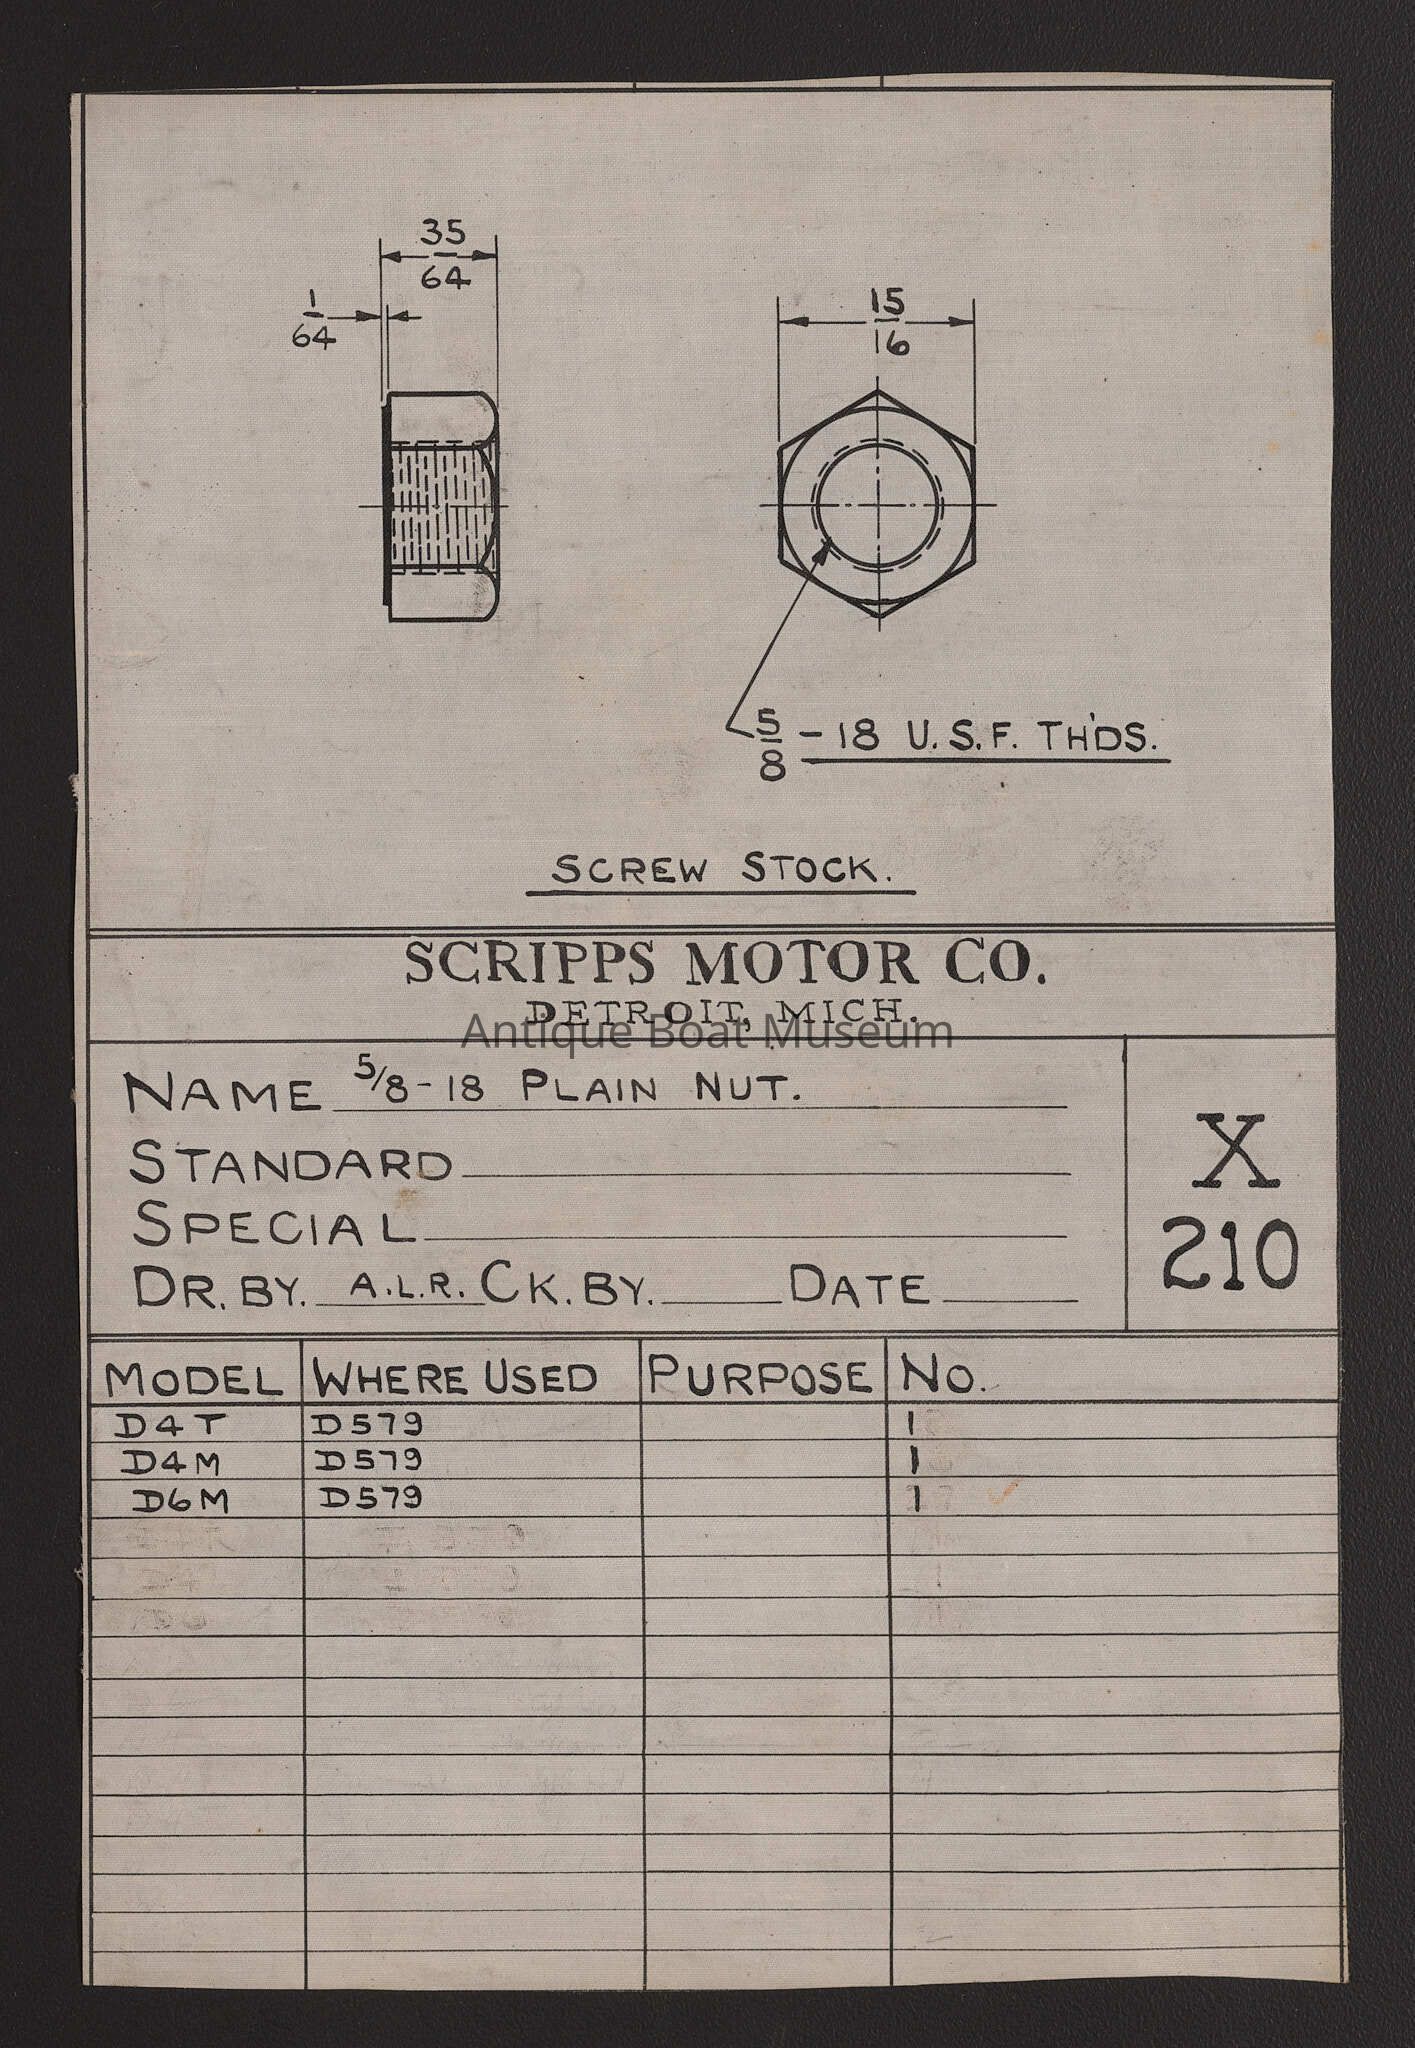 35
64
1
64
15
16
5/8 - 18 U.S.F. TH'DS.
SCREW STOCK.
SCRIPPS MOTOR CO.
DETROIT, MICH.
Antique Boat Museum
NAME 5/8-18 PLAIN NUT.
STANDARD
SPECIAL
DR. BY. A.L.R. CK. BY. DATE
X
210
MODEL WHERE USED PURPOSE NO.
D4T D579 1
D4M D579 1
D6M D579 1